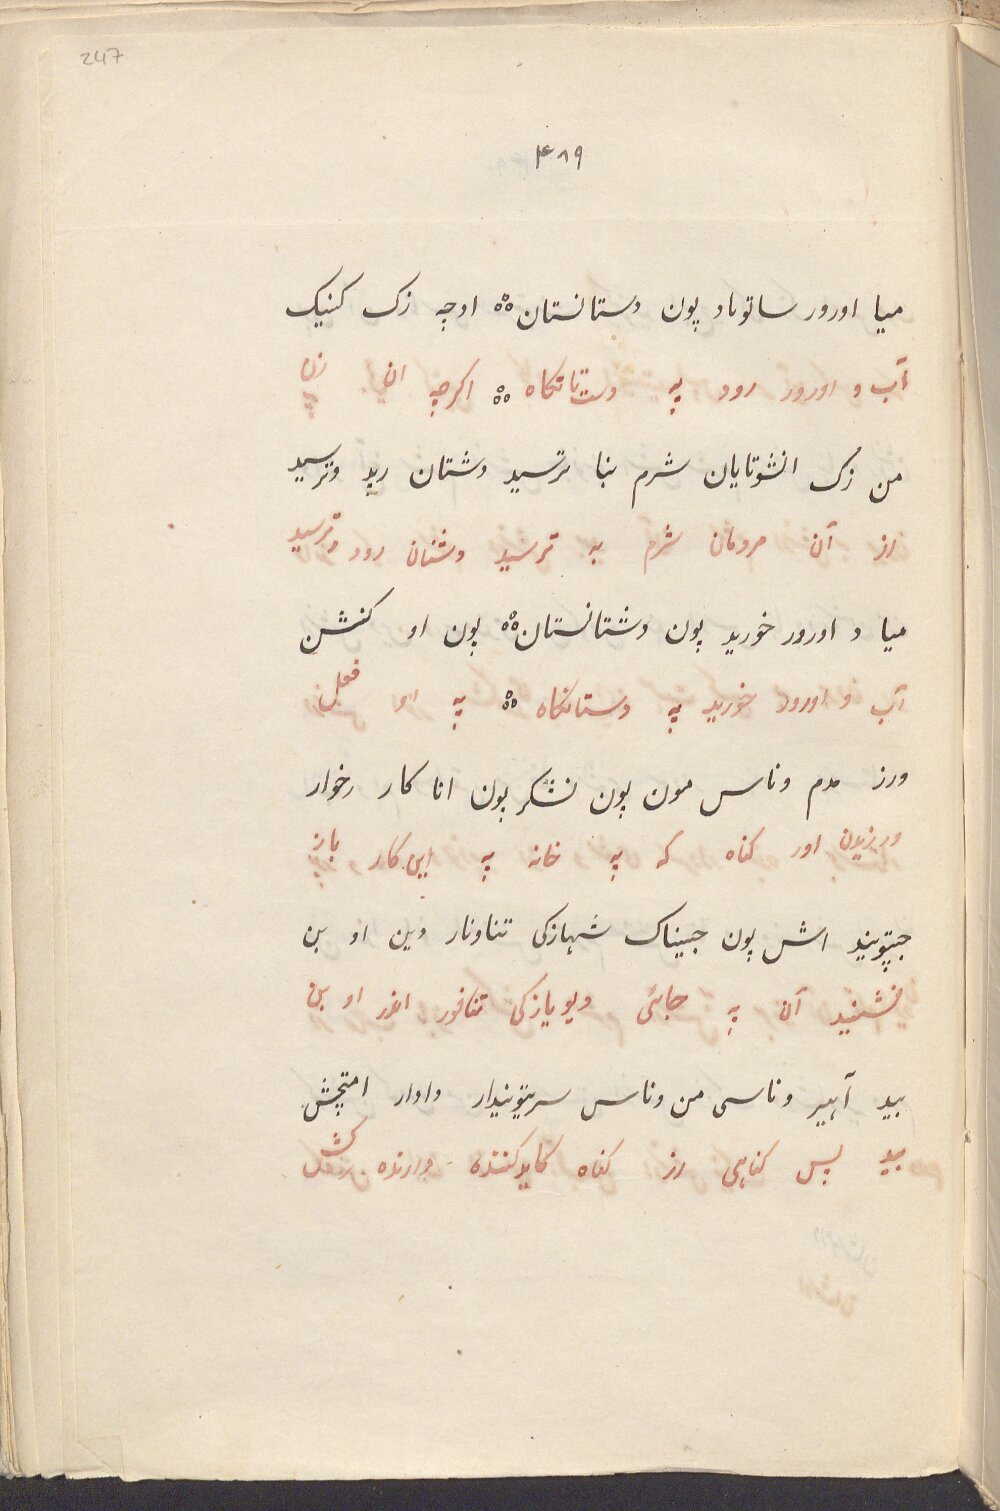 247
۴۸۹
میا اورور ساتوناد پون دستانستان ⁘ ادچه زک کنیک
آب و اورور رود په دستانکاه ⁘ اکرچه ان زن
من زک انشوتایان شرم بنا ترسید دشتان رید وترسید
از آن مردمان شرم به ترسید دشتان رود وترسید
میا د اورور خورید پون دشتانستان ⁘ پون او کنشن
آب و اورور خورید په دستانکاه ⁘ په او فعل
ورز مدم وناس مون پون نشکر پون انا کار رخوار
ورزیون اور کناه که په خانه په این کار باز
جیتویند اش پون جیناک شهازکی تناونار دین او بن
نشیند آن په جائی ویویازکی تنافور اندر او بن
بید آبیر وناسی من وناس سریتویندار دادار امتچش
بید پس کناهی از کناه نمایدکننده دارنده